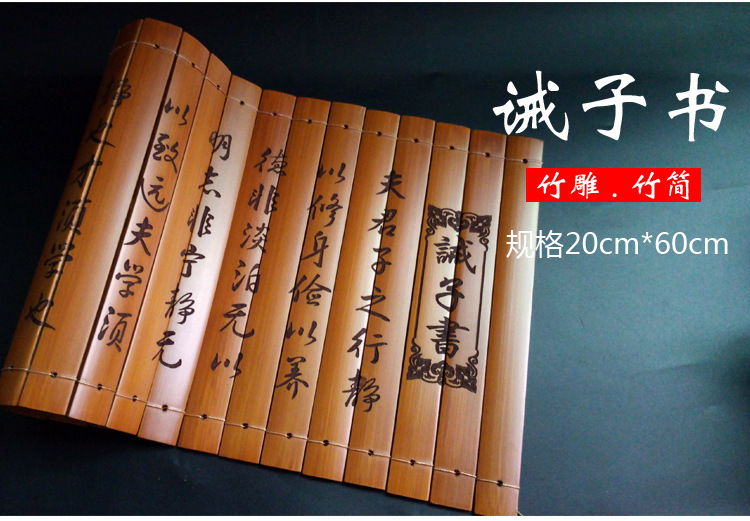 诫子书
竹雕.竹简
规格20cm*60cm
誡子書
夫君子之行静
以修身俭以养
德非淡泊无以
明志非宁静无
以致远夫学须
静也才须学也